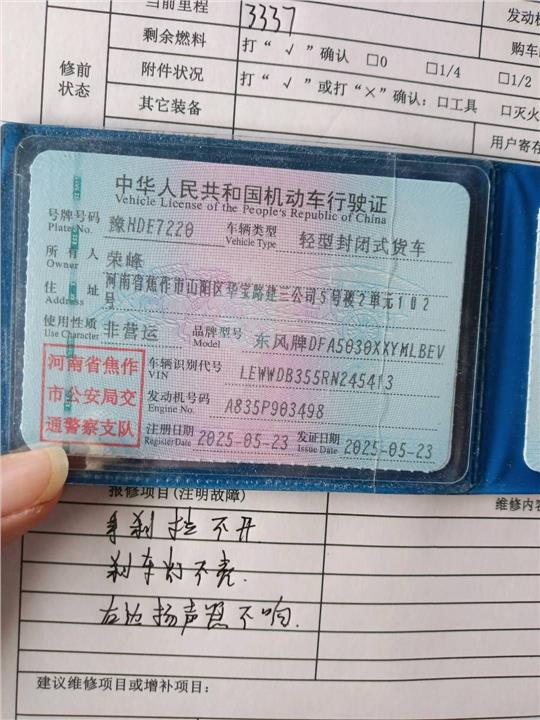 当前里程
3337
发动机
剩余燃料
打“√”确认 □0 □1/4 □1/2
购车
修前状态
附件状况
打“√”或打“×”确认：□工具 □灭火
其它装备
用户寄存
中华人民共和国机动车行驶证
Vehicle License of the People's Republic of China
号牌号码 Plate No. 豫HDE7220 车辆类型 Vehicle Type 轻型封闭式货车
所有人 Owner 荣峰
住址 Address 河南省焦作市山阳区华宝路建三公司5号楼2单元102号
使用性质 Use Character 非营运 品牌型号 Model 东风牌DFA5030XXYMLBEV
河南省焦作市公安局交通警察支队
车辆识别代号 VIN LEWWDB355RN245413
发动机号码 Engine No. A835P903498
注册日期 Register Date 2025-05-23 发证日期 Issue Date 2025-05-23
报修项目(注明故障)
维修内容
手刹拉不开
刹车灯不亮.
右边扬声器不响.
建议维修项目或增补项目：